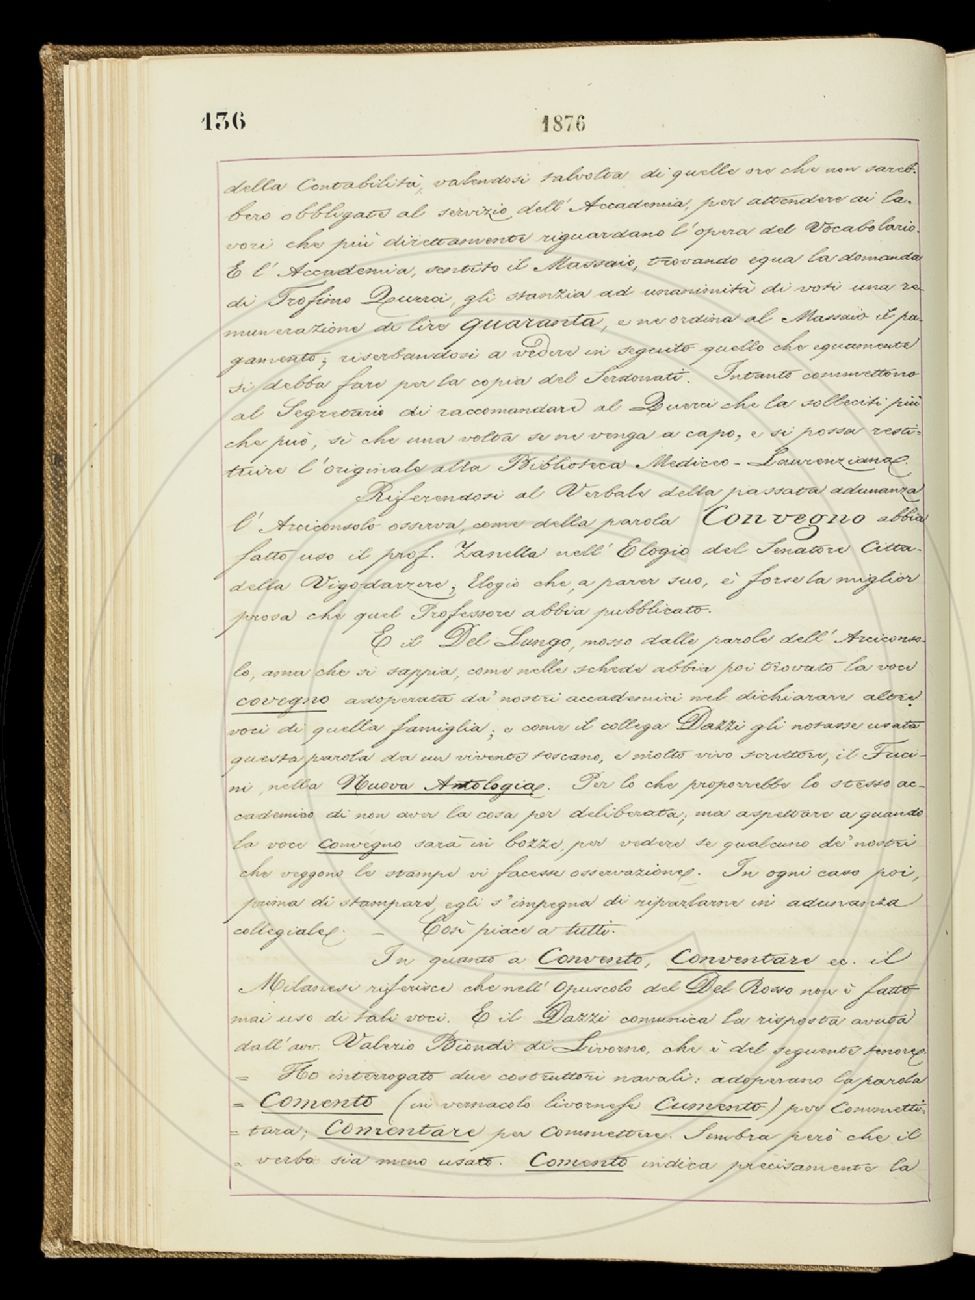 136
1876
della Contabilità, valendosi talvolta di quelle ore che non sareb-
bero obbligate al servizio dell'Accademia, per attendere ai la-
vori che più direttamente riguardano l'opera del Vocabolario.
E l'Accademia, sentito il Massaio, trovando equa la domanda
di Trofimo gli stanzia ad unanimità di voti una re-
munerazione di lire quaranta, e ne ordina al Massaio il pa-
gamento; riserbandosi a vedere in seguito quello che equamente
si debba fare per la copia del Serdonati. Intanto commettono
al Segretario di raccomandare al che la solleciti più
che può, sì che una volta se ne venga a capo, e si possa resti-
tuire l'originale alla Biblioteca Mediceo-Laurenziana.
Riferendosi al Verbale della passata adunanza
l'Arciconsolo osserva, come della parola Convegno abbia
fatto uso il prof. Zanella nell'Elogio del Senatore Citta-
della Vigodarzere; Elogio che, a parer suo, è forse la miglior
prosa che quel Professore abbia pubblicato.
E il Del Lungo, mosso dalle parole dell'Arciconso-
lo, ama che si sappia, come nelle schede abbia poi trovato la voce
covegno adoperata da' nostri accademici nel dichiarare altre
voci di quella famiglia; e come il collega Dazzi gli notasse usata
questa parola da un vivente toscano, e molto vivo scrittore, il Fuci-
ni, nella Nuova Antologia. Per lo che proporrebbe lo stesso ac-
cademico di non aver la cosa per deliberata; ma aspettare a quando
la voce convegno sarà in bozze, per vedere se qualcuno de' nostri
che veggono le stampe vi facesse osservazione. In ogni caso poi,
prima di stampare, egli s'impegna di riparlarne in adunanza
collegiale. – Così piace a tutti.
In quanto a Convento, Conventare ec. il
Milanesi riferisce che nell'Opuscolo del Del Rosso non è fatto
mai uso di tali voci. E il Dazzi comunica la risposta avuta
dall'avv. Valerio Biondi di Livorno, che è del seguente tenore
= Ho interrogato due costruttori navali: adoperano la parola
= Comento (in vernacolo livornese Cumento) per Commetti-
= tura; Comentare per Commettere. Sembra però che il
= verbo sia meno usato. Comento indica precisamente la